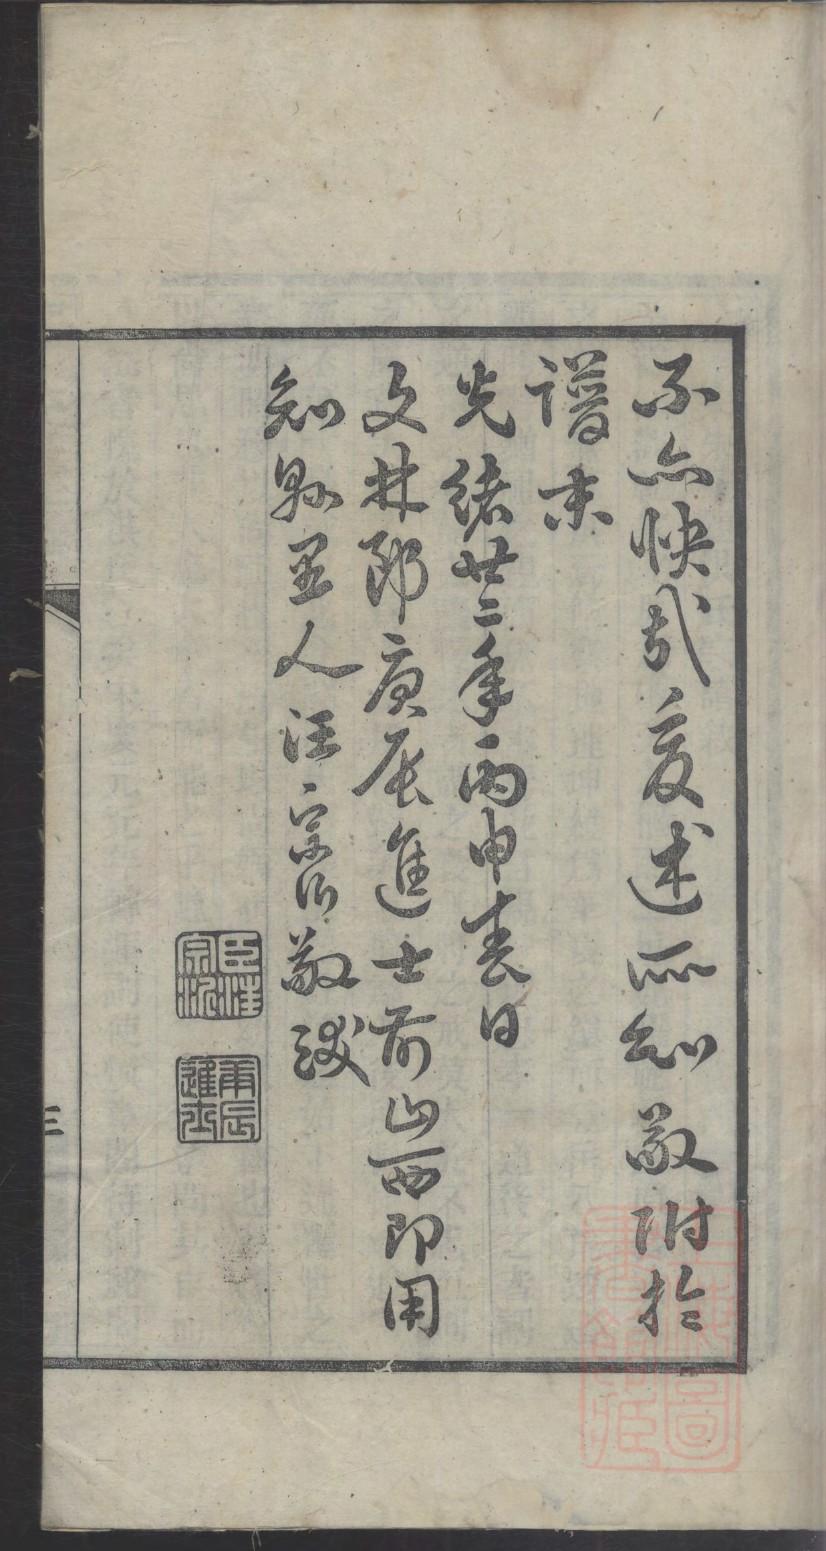 不亦快哉爰述所知敬附於
譜末
光緒廿二年丙申春日
文林郎庚辰進士前山西即用
知縣里人汪宗沂敬跋
臣汪宗沂
庚辰進士
三